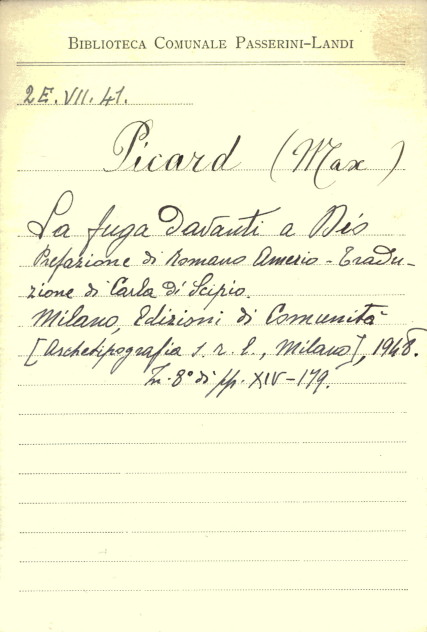 BIBLIOTECA COMUNALE PASSERINI-LANDI
2E. VII. 41.
Picard (Max)
La fuga davanti a Dio
Prefazione di Romano Amerio - Tradu-
zione di Carla di Scipio.
Milano, Edizioni di Comunità
[Archetipografia s. r. l., Milano], 1948.
In-8° di pp. XIV-179.